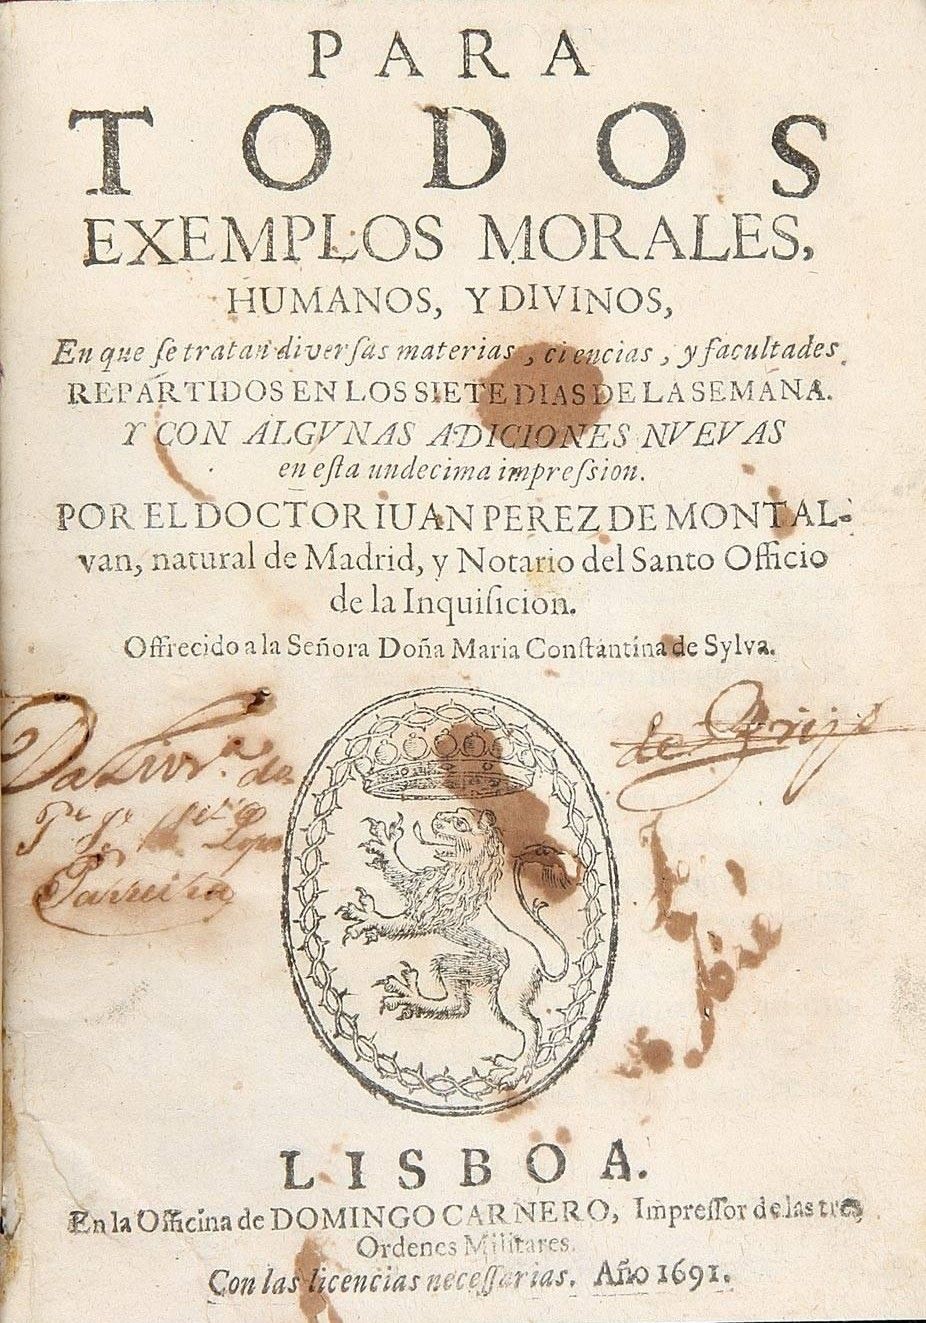 PARA
TODOS
EXEMPLOS MORALES,
HUMANOS, Y DIVINOS,
En que ſe tratan diverſas materias, ciencias, y facultades,
REPARTIDOS EN LOS SIETE DIAS DE LA SEMANA.
Y CON ALGVNAS ADICIONES NVEVAS
en eſta undecima impreſsion.
POR EL DOCTOR IUAN PEREZ DE MONTAL-
van, natural de Madrid, y Notario del Santo Officio
de la Inquiſicion.
Offrecido a la Señora Doña Maria Conſtantina de Sylva.
Da Livr.ª do
de
LISBOA.
En la Officina de DOMINGO CARNERO, Impreſſor de las tres
Ordenes Militares.
Con las licencias neceſſarias. Año 1691.